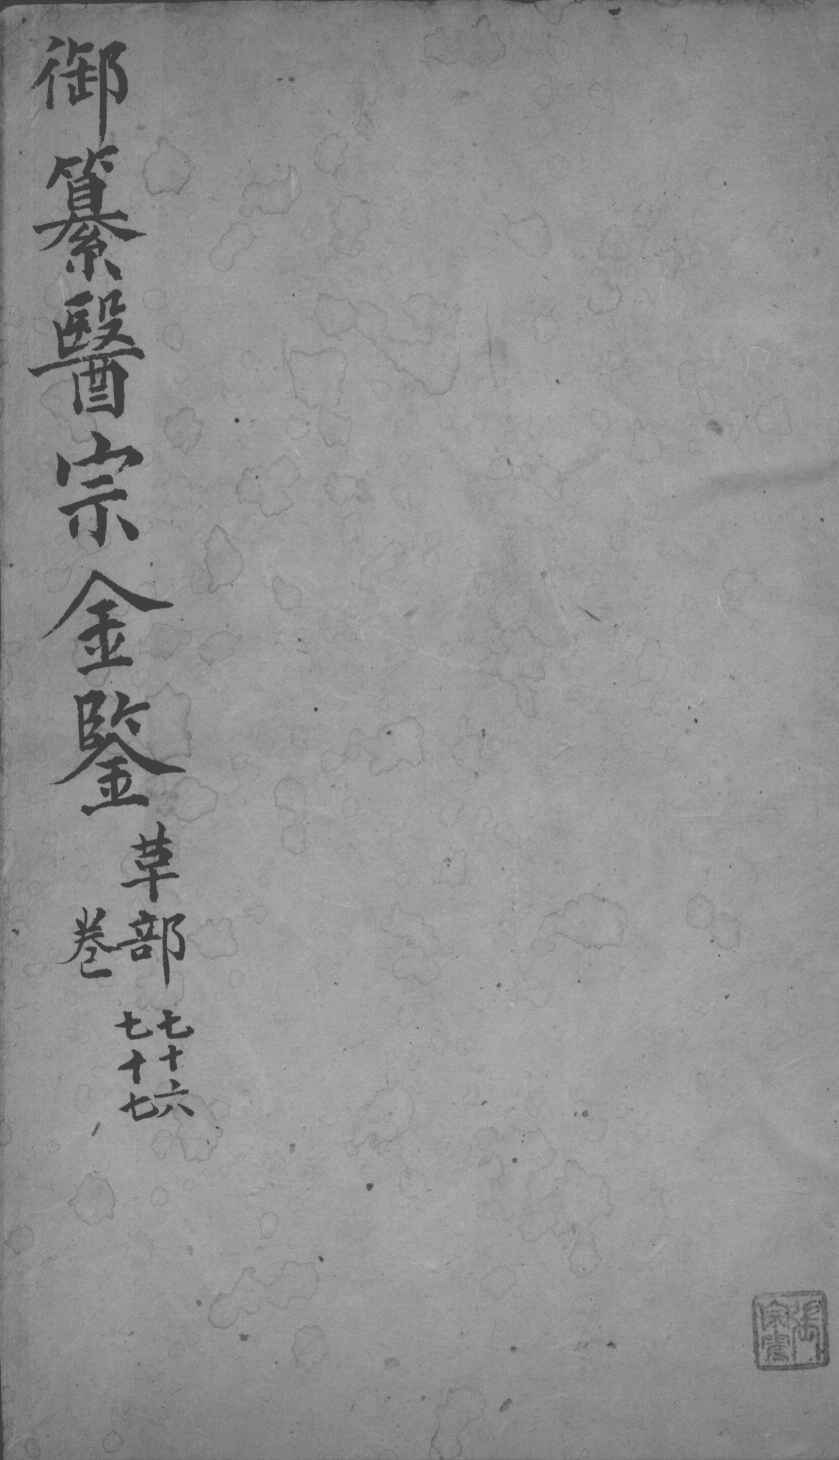 御纂醫宗金鑒
草部
卷
七十六
七十七